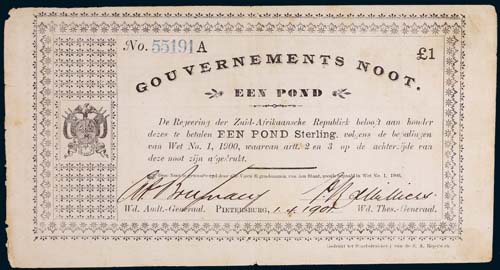 No. 55191 A
£1
GOUVERNEMENTS NOOT.
EEN POND
De Regeering der Zuid-Afrikaansche Republiek belooft aan houder
dezes te betalen EEN POND Sterling, volgens de bepalingen
van Wet No. 1, 1900, waarvan artt. 2 en 3 op de achterzijde van
deze noot zijn afgedrukt.
Wd. Audt.-Generaal. PIETERSBURG, 1.4.1901. Wd. Thes.-Generaal.